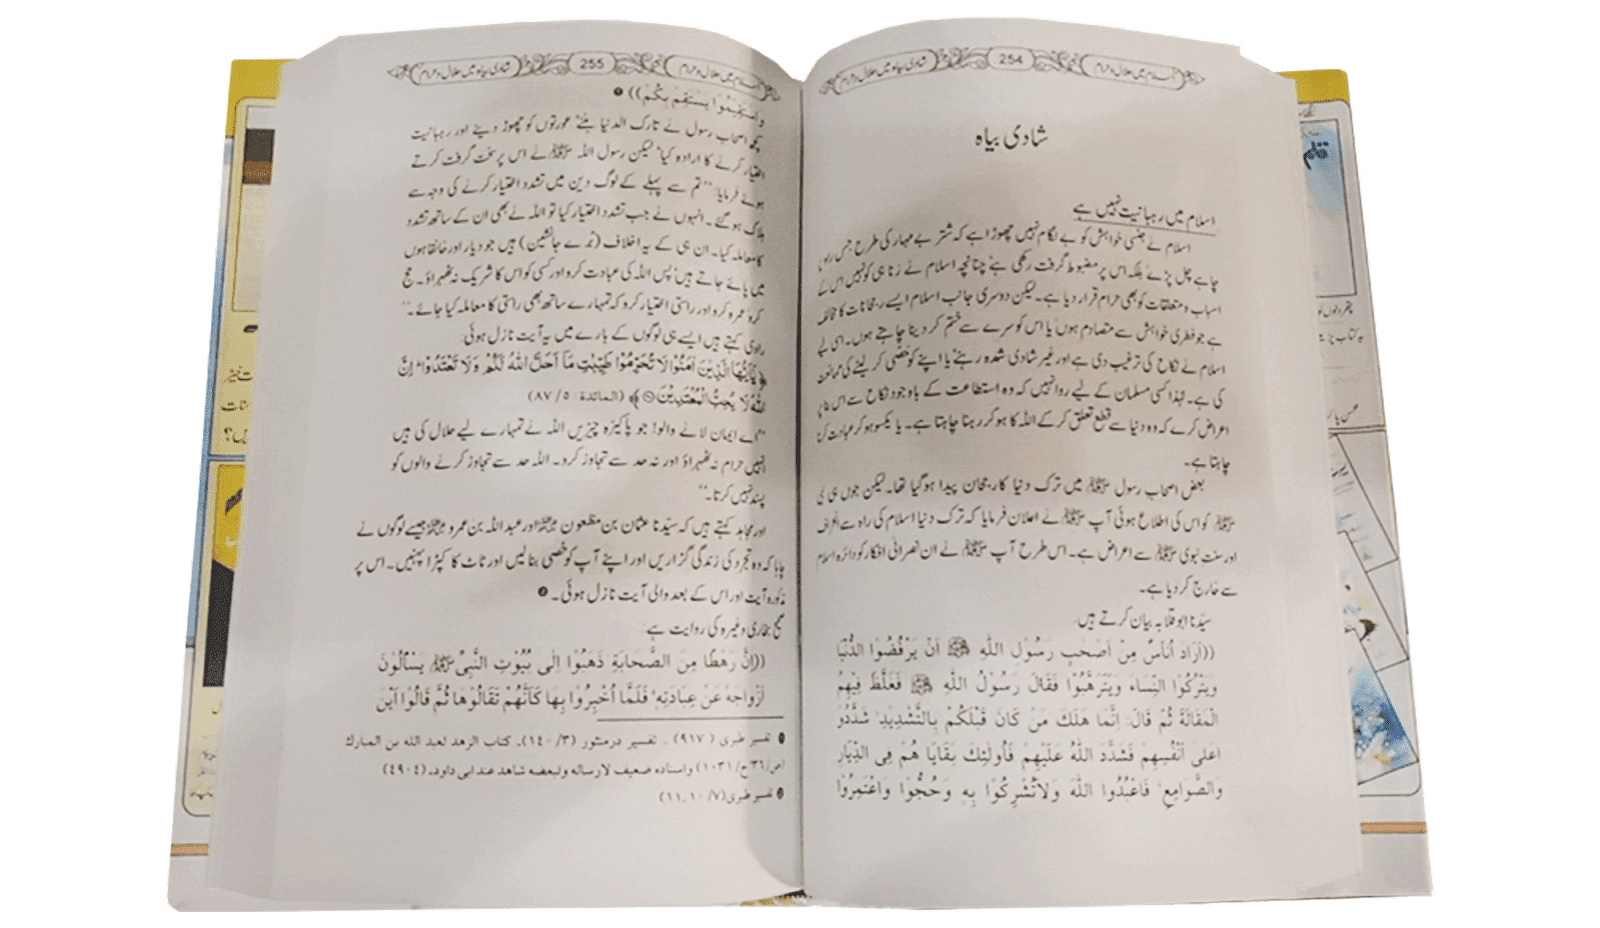 شادی بیاہ میں حلال و حرام
254
اسلام میں حلال و حرام
شادی بیاہ
اسلام میں رہبانیت نہیں ہے
اسلام نے جنسی خواہش کو بے لگام نہیں چھوڑا ہے کہ شتر بے مہار کی طرح جس راہ پا
چاہے چل پڑے بلکہ اس پر مضبوط گرفت رکھی ہے' چنانچہ اسلام نے زنا ہی کو نہیں اس کے
اسباب و متعلقات کو بھی حرام قرار دیا ہے۔ لیکن دوسری جانب اسلام ایسے رجحانات کا مخالف
ہے جو فطری خواہش سے متصادم ہوں' یا اس کو سرے سے ختم کر دینا چاہتے ہوں۔ اسی لیے
اسلام نے نکاح کی ترغیب دی ہے اور غیر شادی شدہ رہنے' یا اپنے کو خصی کر لینے کی ممانعت
کی ہے۔ لہٰذا کسی مسلمان کے لیے روا نہیں کہ وہ استطاعت کے باوجود نکاح سے اس بنا پر
اعراض کرے کہ وہ دنیا سے قطع تعلق کر کے اللہ کا ہو کر رہنا چاہتا ہے۔ یا یکسو ہو کر عبادت کرنا
چاہتا ہے۔
بعض اصحاب رسول ﷺ میں ترک دنیا کا رجحان پیدا ہو گیا تھا۔ لیکن جوں ہی نبی
ﷺ کو اس کی اطلاع ہوئی آپ ﷺ نے اعلان فرمایا کہ ترک دنیا اسلام کی راہ سے انحراف
اور سنت نبوی ﷺ سے اعراض ہے۔ اس طرح آپ ﷺ نے ان نصرانی افکار کو دائرہ اسلام
سے خارج کر دیا ہے۔
سیّدنا ابو قلابہ بیان کرتے ہیں:
((اَرَادَ اُنَاسٌ مِنْ اَصْحٰبِ رَسُوْلِ اللّٰهِ ﷺ اَنْ يَرْفُضُوْا الدُّنْيَا
وَيَتْرُكُوْا النِّسَاءَ وَيَتَرَهَّبُوْا فَقَالَ رَسُوْلُ اللّٰهِ ﷺ فَغَلَّظَ فِيْهِمُ
الْمَقَالَةَ ثُمَّ قَالَ: اِنَّمَا هَلَكَ مَنْ كَانَ قَبْلَكُمْ بِالتَّشْدِيْدِ' شَدَّدُوْا
عَلىٰ اَنْفُسِهِمْ فَشَدَّدَ اللّٰهُ عَلَيْهِمْ فَاُولٰئِكَ بَقَايَا هُمْ فِى الدِّيَارِ
وَالصَّوَامِعِ' فَاعْبُدُوا اللّٰهَ وَلَاتُشْرِكُوْا بِهٖ وَحُجُّوْا وَاعْتَمِرُوْا
شادی بیاہ میں حلال و حرام
255
اسلام میں حلال و حرام
وَاسْتَقِيْمُوْا يَسْتَقِمْ بِكُمْ)) ❶
کچھ اصحاب رسول نے تارک الدنیا بننے' عورتوں کو چھوڑ دینے اور رہبانیت
اختیار کرنے کا ارادہ کیا' لیکن رسول اللہ ﷺ نے اس پر سخت گرفت کرتے
ہوئے فرمایا: ''تم سے پہلے کے لوگ دین میں تشدد اختیار کرنے کی وجہ سے
ہلاک ہو گئے۔ انہوں نے جب تشدد اختیار کیا تو اللہ نے بھی ان کے ساتھ تشدد
کا معاملہ کیا۔ ان ہی کے یہ اخلاف (برے جانشین) ہیں جو دیار اور خانقاہوں
میں پائے جاتے ہیں' پس اللہ کی عبادت کرو اور کسی کو اس کا شریک نہ ٹھہراؤ۔ حج
کرو' عمرہ کرو اور راستی اختیار کرو کہ تمہارے ساتھ بھی راستی کا معاملہ کیا جائے۔''
راوی کہتے ہیں ایسے ہی لوگوں کے بارے میں یہ آیت نازل ہوئی:
﴿يٰٓاَيُّهَا الَّذِيْنَ اٰمَنُوْا لَا تُحَرِّمُوْا طَيِّبٰتِ مَآ اَحَلَّ اللّٰهُ لَكُمْ وَلَا تَعْتَدُوْا ؕ اِنَّ
اللّٰهَ لَا يُحِبُّ الْمُعْتَدِيْنَ﴾ (المائدة: ٥/ ٨٧)
''اے ایمان لانے والو! جو پاکیزہ چیزیں اللہ نے تمہارے لیے حلال کی ہیں
انہیں حرام نہ ٹھہراؤ اور نہ حد سے تجاوز کرو۔ اللہ حد سے تجاوز کرنے والوں کو
پسند نہیں کرتا۔''
اور مجاہد کہتے ہیں کہ سیّدنا عثمان بن مظعون ؓ اور عبداللہ بن عمرو ؓ جیسے لوگوں نے
چاہا کہ وہ تجرد کی زندگی گزاریں اور اپنے آپ کو خصی بنا لیں اور ٹاٹ کا کپڑا پہنیں۔ اس پر
مذکورہ آیت اور اس کے بعد والی آیت نازل ہوئی۔ ❷
صحیح بخاری وغیرہ کی روایت ہے:
((اِنَّ رَهْطًا مِنَ الصَّحَابَةِ ذَهَبُوْا اِلٰى بُيُوْتِ النَّبِىِّ ﷺ يَسْأَلُوْنَ
اَزْوَاجَهُ عَنْ عِبَادَتِهٖ' فَلَمَّا اُخْبِرُوْا بِهَا كَاَنَّهُمْ تَقَالُوْهَا ثُمَّ قَالُوْا اَيْنَ
❶ تفسير طبرى (٩١٧) ۔ تفسير درمنثور (٣/ ١٤٠)، كتاب الزهد لعبد الله بن المبارك
(ص/ ٣٦ ح/ ١٠٣١) واسناده ضعيف لارساله ولبعضه شاهد عند ابى داود۔ (٤٩٠٤)
❷ تفسير طبرى (٧/ ١٠۔١١)